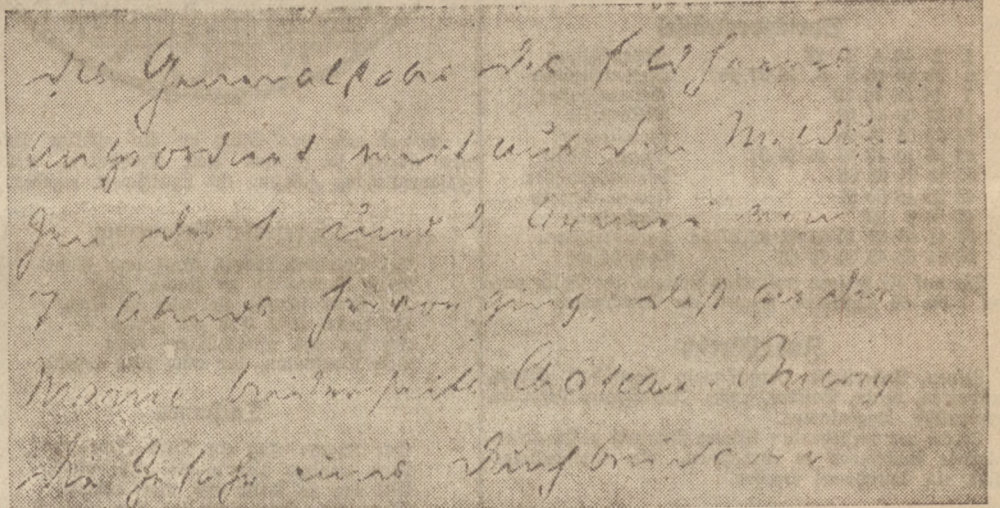 des Generalstabs des Feldheeres
angeordnet weil aus den Meldun
gen der 1 und 2 Armee vom
7 abends hervorging, daß an der
Marne beiderseits Château-Thierry
die Gefahr eines Durchbruches